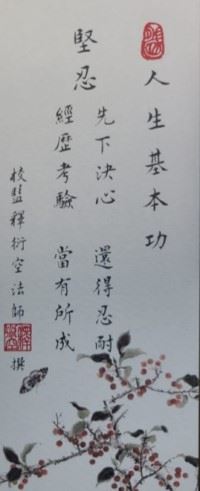 人生基本功
堅忍
先下決心 還得忍耐
經歷考驗 當有所成
校監釋衍空法師 撰